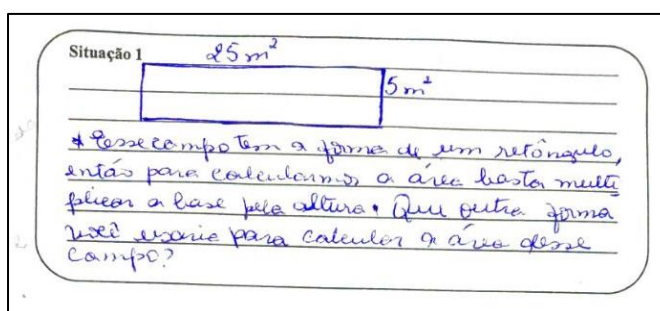 Situação 1
25 m²
5 m²
* Esse campo tem a forma de um retângulo,
então para calcularmos a área basta multi
plicar a base pela altura. Que outra forma
você usaria para calcular a área desse
campo?